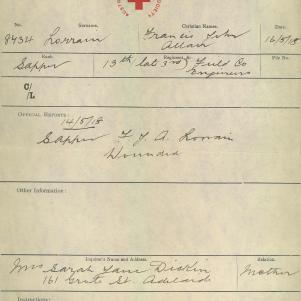 No. Surname. Christian Names. Date.
8434 Lorrain Francis John 16/5/18
Allan
Rank. Regiment. File No.
Sapper 13th late 3rd Field Co
Engineers
C/
L
OFFICIAL REPORTS:
14/5/18
Sapper F. J. A. Lorrain
Wounded
Other Information:
Inquirer's Name and Address. Relation.
Mrs Sarah Jane Dickin Mother
161 Grote St. Adelaide
Instructions: